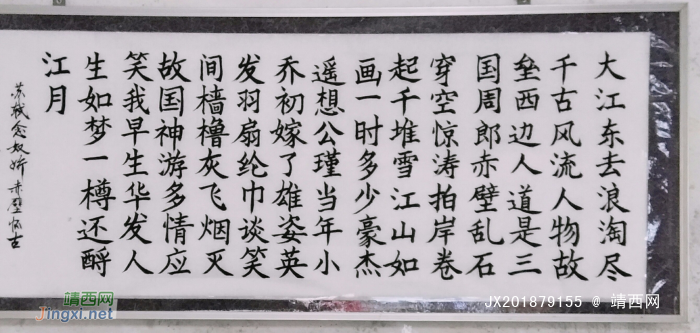 大江东去浪淘尽
千古风流人物故
垒西边人道是三
国周郎赤壁乱石
穿空惊涛拍岸卷
起千堆雪江山如
画一时多少豪杰
遥想公瑾当年小
乔初嫁了雄姿英
发羽扇纶巾谈笑
间樯橹灰飞烟灭
故国神游多情应
笑我早生华发人
生如梦一樽还酹
江月
苏轼念奴娇赤壁怀古
靖西网
Jingxi.net
JX201879155 @ 靖西网